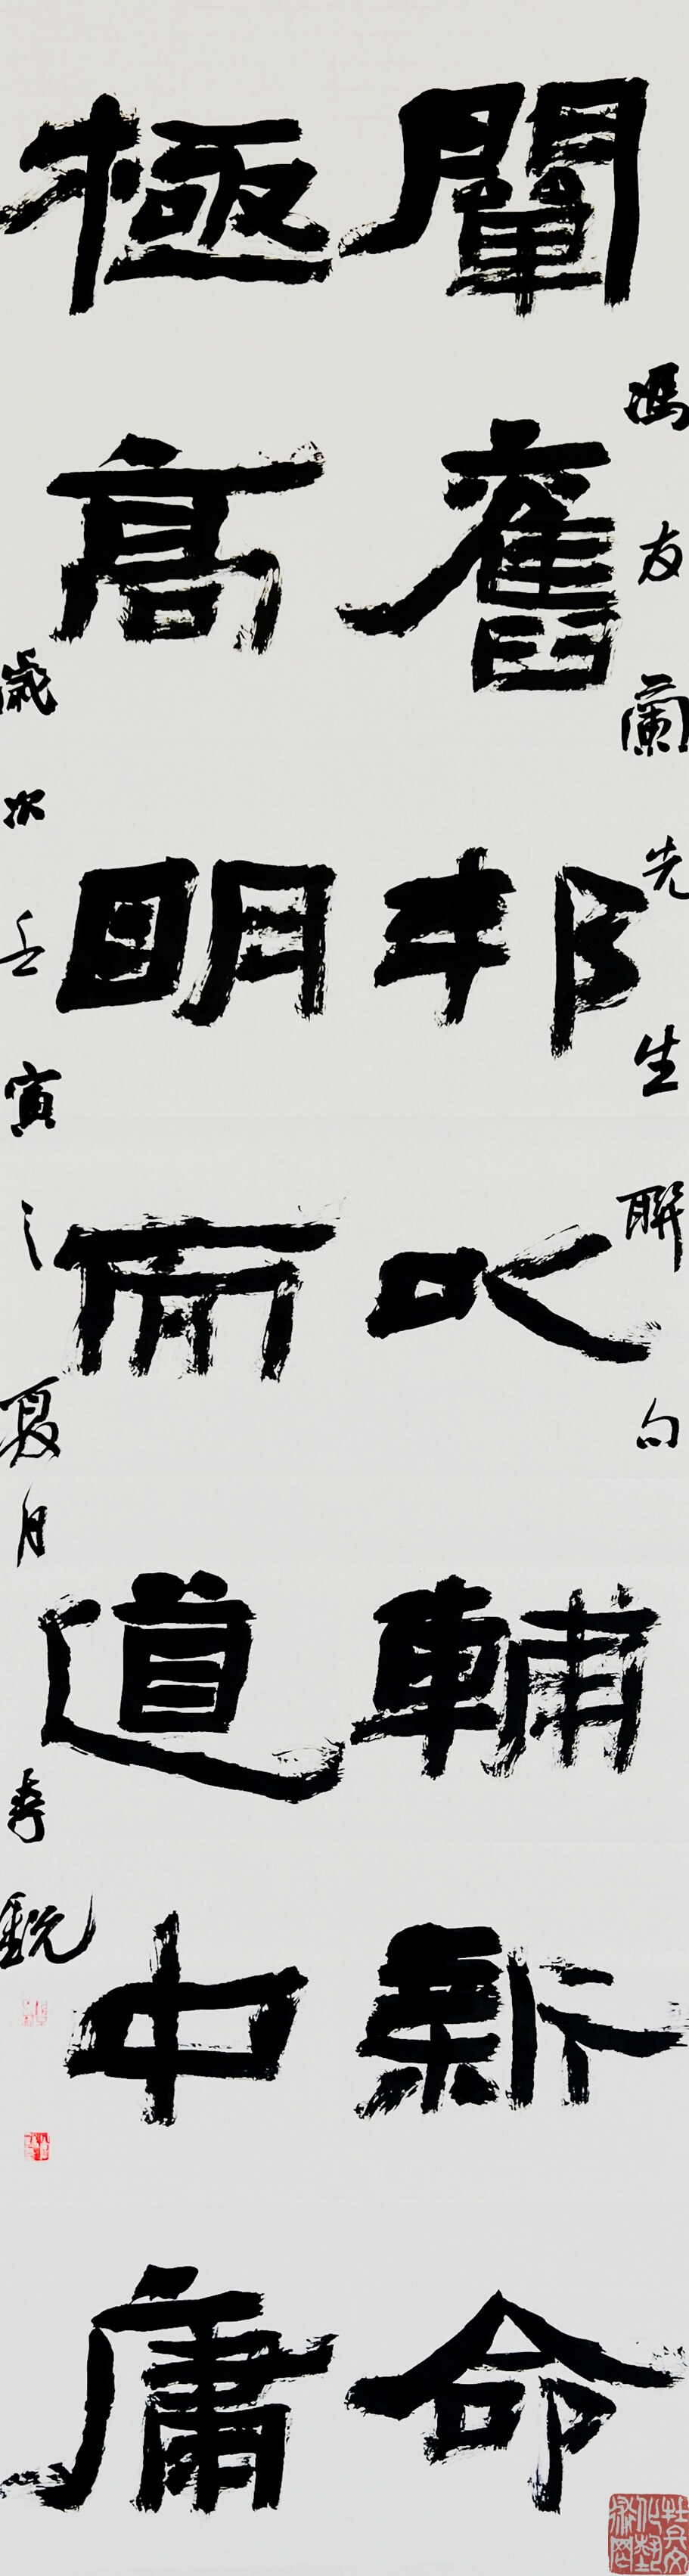 闡舊邦以輔新命
馮友蘭先生聯句
極高明而道中庸
歲次壬寅之夏月